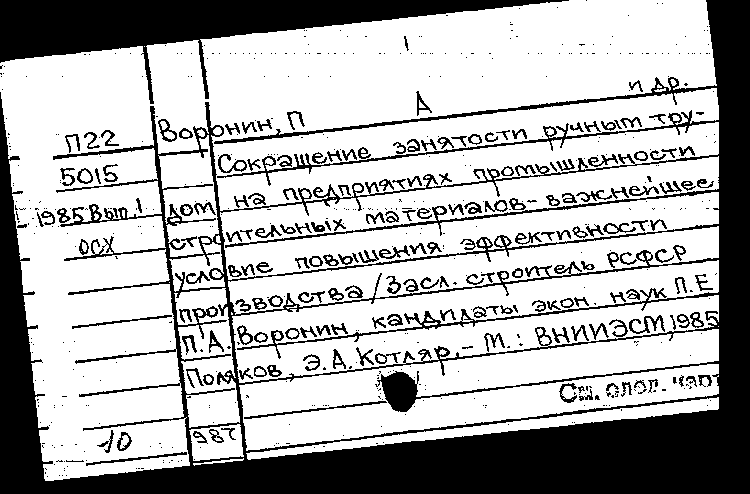 Воронин, П А и др.
П22
5015
1985 Вып.1
ОСХ
Сокращение занятости ручным тру-
дом на предприятиях промышленности
строительных материалов - важнейшее
условие повышения эффективности
производства / Засл. строитель РСФСР
П.А. Воронин, кандидаты экон. наук П.Е
Поляков, Э.А. Котляр. - М.: ВНИИЭСМ, 1985
См.
10